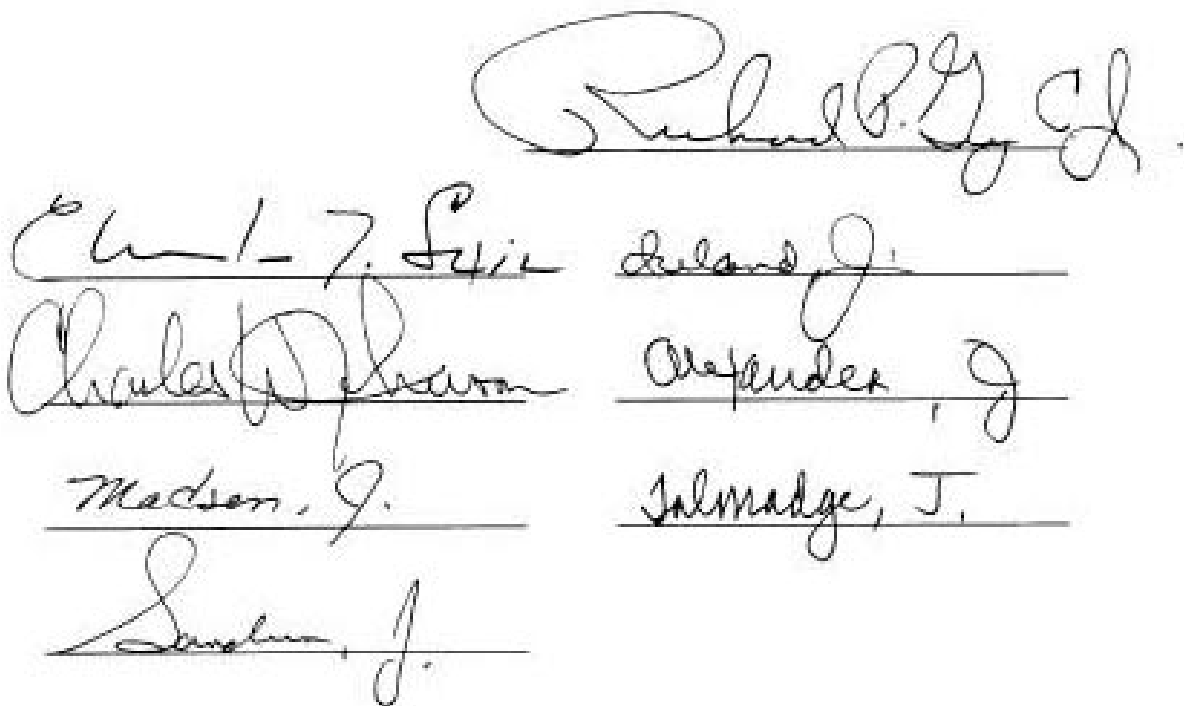 Richard P. Guy CJ.
Ireland, J.
Charles W. Johnson
Alexander, J
Madsen, J.
Talmadge, J.
Sanders, J.